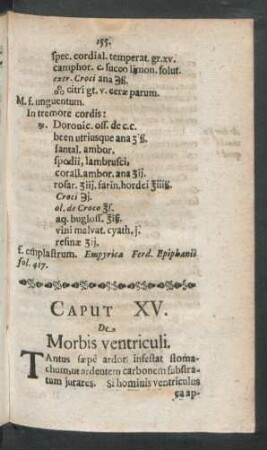 155.
spec. cordial. temperat. gr.xv.
camphor. c. succo limon. solut.
extr. Croci ana ʒß.
citri gt. v. ceræ parum.
M. f. unguentum.
In tremore cordis:
℞. Doronic. oss. de c.c.
been utriusque ana ʒß.
santal. ambor.
spodii, lambrusci,
corall. ambor. ana ʒij.
rosar. ʒiij. farin. hordei
Croci ℈j.
ol. de Croco
aq. bugloss.
vini malvat. cyath. j.
resinæ ʒij.
f. emplastrum. Empyrica Ferd. Epiphanii
fol. 417.
CAPUT XV.
De
Morbis ventriculi.
TAntus sæpè ardor infestat stoma-
chum, ut ardentem carbonem substra-
tum jurares. Si hominis ventriculus
ea ap-